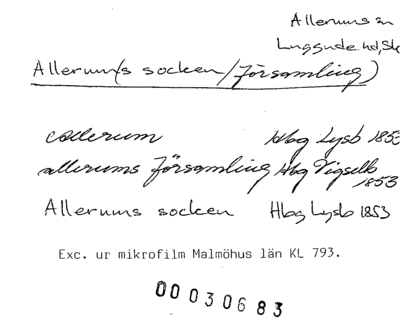 Allerums sn
Luggude hd, Sk
Allerum(s socken/församling)
Allerum Hbg Lysb 1853
Allerums församling Hbg Vigselb 1853
Allerums socken Hbg Lysb 1853
Exc. ur mikrofilm Malmöhus län KL 793.
00 030683